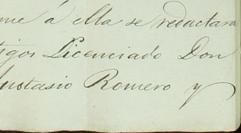 me á ella se redactam
tigos Licenciado Don
Anastasio Romero y